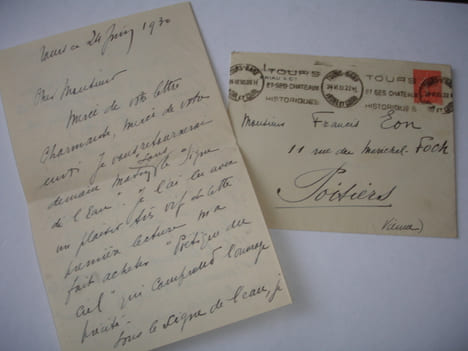 Tours ce 24 Juin 1930
Cher Monsieur
Merci de votre lettre
charmante, merci de votre
envoi. Je vous retournerai
demain matin "Sous le signe
de l'Eau". Je l'ai lu avec
un plaisir très vif et cette
première lecture m'a
fait acheter "Poétique du
ciel" qui comprend l'ouvrage
précité.
Sous le signe de l'eau, je
TOURS
ET SES CHATEAUX
HISTORIQUES
TOURS
ET SES CHATEAUX
HISTORIQUES
Monsieur Francis Eon
11 rue du Maréchal-Foch
Poitiers
(Vienne)